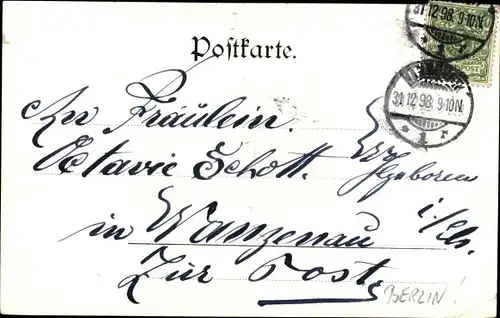 31.12.98. 9-10N.
Postkarte.
31.12.98. 9-10N
* 1 r
An Fräulein
Octavie Schott.
Wohlgeboren
in Wanzenau i./Els.
Zur Post
BERLIN!